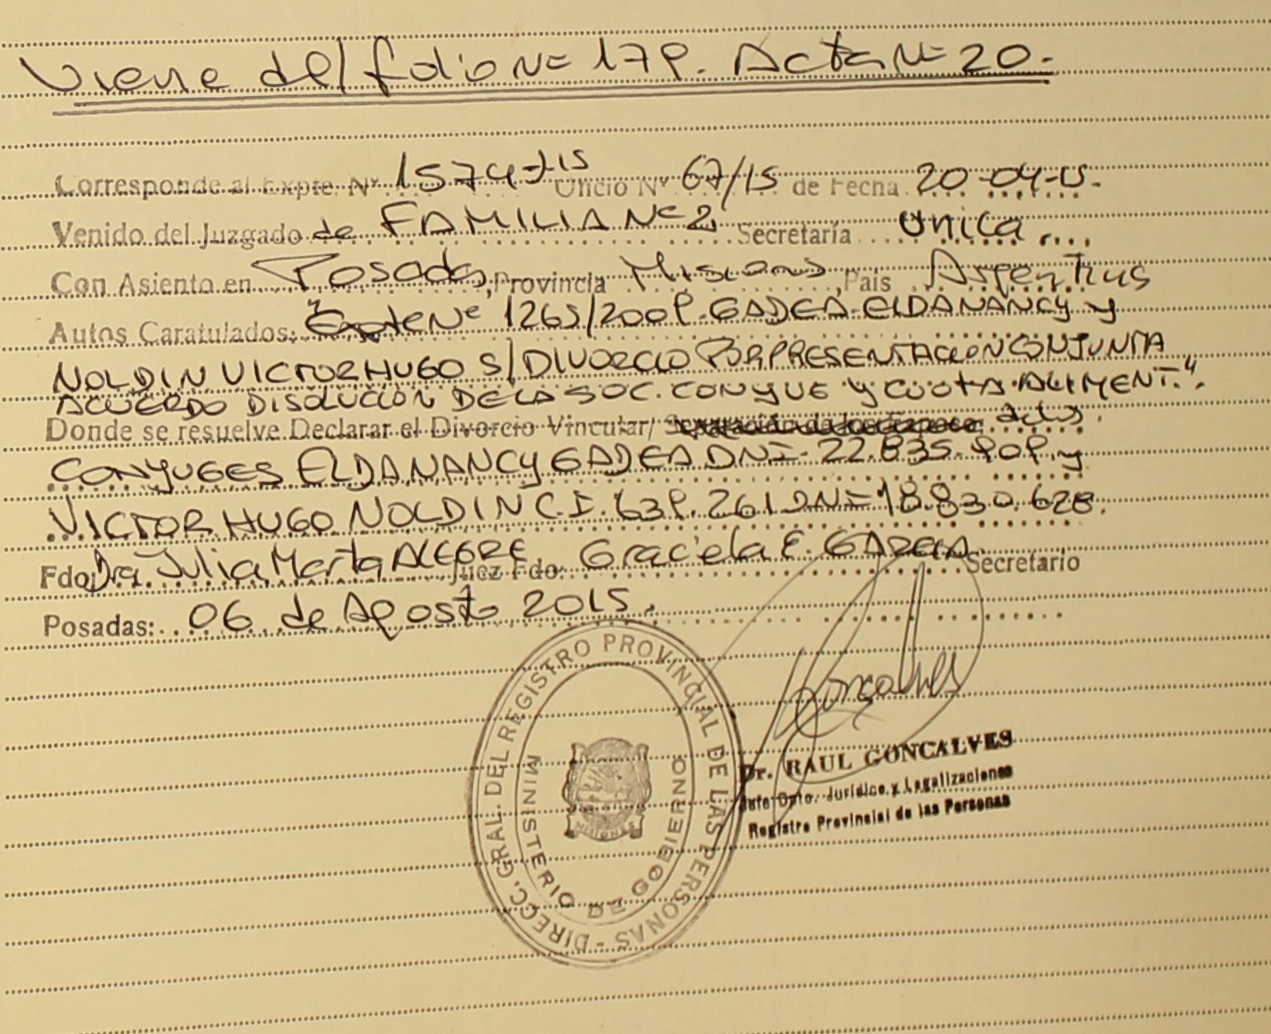 Viene del folio Nº 179. Acta Nº 20.
Corresponde al Expte Nº 1574-J-15 Oficio Nº 67/15 de Fecha 20-04-15.
Venido del Juzgado de FAMILIA Nº 2 Secretaría Unica....
Con Asiento en Posadas, Provincia Misiones, País Argentina
Autos Caratulados: "Expte Nº 1265/2009. GADEA ELDA NANCY y
NOLDIN VICTOR HUGO S/ DIVORCIO POR PRESENTACION CONJUNTA
ACUERDO DISOLUCIÓN DE LA SOC. CONYUG Y CUOTA ALIMENT.".
Donde se resuelve Declarar el Divorcio Vincular/ de los
CONYUGES ELDA NANCY GADEA DNI- 22.835.909 y
VICTOR HUGO NOLDIN C.I. 639.261 DNI 18.830.628.
Fdo. Dra. Julia Marta ALEGRE Juez Fdo: Graciela E. GARCIA Secretario
Posadas: 06 de Agosto 2015.
DIRECC. GRAL. DEL REGISTRO PROVINCIAL DE LAS PERSONAS -
MINISTERIO DE GOBIERNO
MISIONES
Goncalves
Dr. RAUL GONCALVES
Jefe Dpto. Jurídico y Legalizaciones
Registro Provincial de las Personas